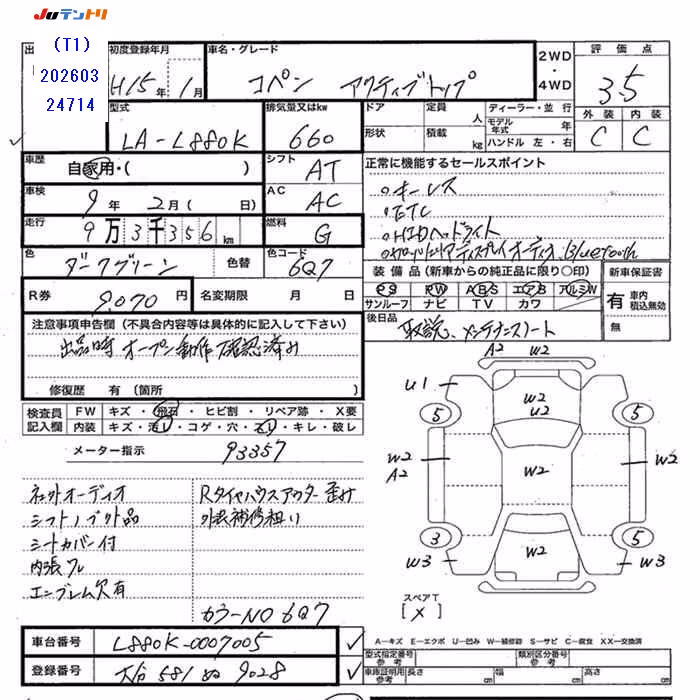 JUテントリ
出
(T1)
202603
24714
初度登録年月
H15年 1月
車名・グレード
コペン アクティブトップ
2WD
・
4WD
評価点
3.5
外装 内装
C C
型式
LA-L880K
排気量又はkw
660
ドア
定員 人
形状
積載 kg
ディーラー・並行
モデル年式 年
ハンドル 左・右
車歴
自家用・( )
シフト
AT
車検
9年 2月( 日)
AC
AC
走行
9万3千356km
燃料
G
色
ダークグリーン
色替
色コード
6Q7
R券
9,070円
名変期限 月 日
正常に機能するセールスポイント
。キーレス
。ETC
。HIDヘッドライト
ディスプレイオーディオ Bluetooth
装備品(新車からの純正品に限り○印)
PS PW ABS エアB アルミW
サンルーフ ナビ TV カワ
新車保証書
有 車内積込無効
無
後日品
取説、メンテナンスノート
注意事項申告欄(不具合内容等は具体的に記入して下さい)
出品時オープン動作確認済み
修復歴 有(箇所 )
検査員記入欄
FW キズ・飛石・ヒビ割・リペア跡・X要
内装 キズ・汚レ・コゲ・穴・スレ・キレ・破レ
メーター指示 93357
ネットオーディオ
シフトノブ外品
シートカバー付
内張ワレ
エンブレム欠有
Rタイヤハウスアウター歪み
外装補修粗い
カラーNO 6Q7
A2 W2
U1
W2
U2
5 5
W2
A2
W2
W2
3 5
W2
W3 W3
スペアT
[X]
A-キズ E-エクボ U-凹み W-補修跡 S-サビ C-腐食 XX-交換済
車台番号
L880K-0007005
登録番号
581 ぬ 9028
型式指定番号 参考
類別区分番号 参考
車庫証明用 参考
長さ cm
幅 cm
高さ cm